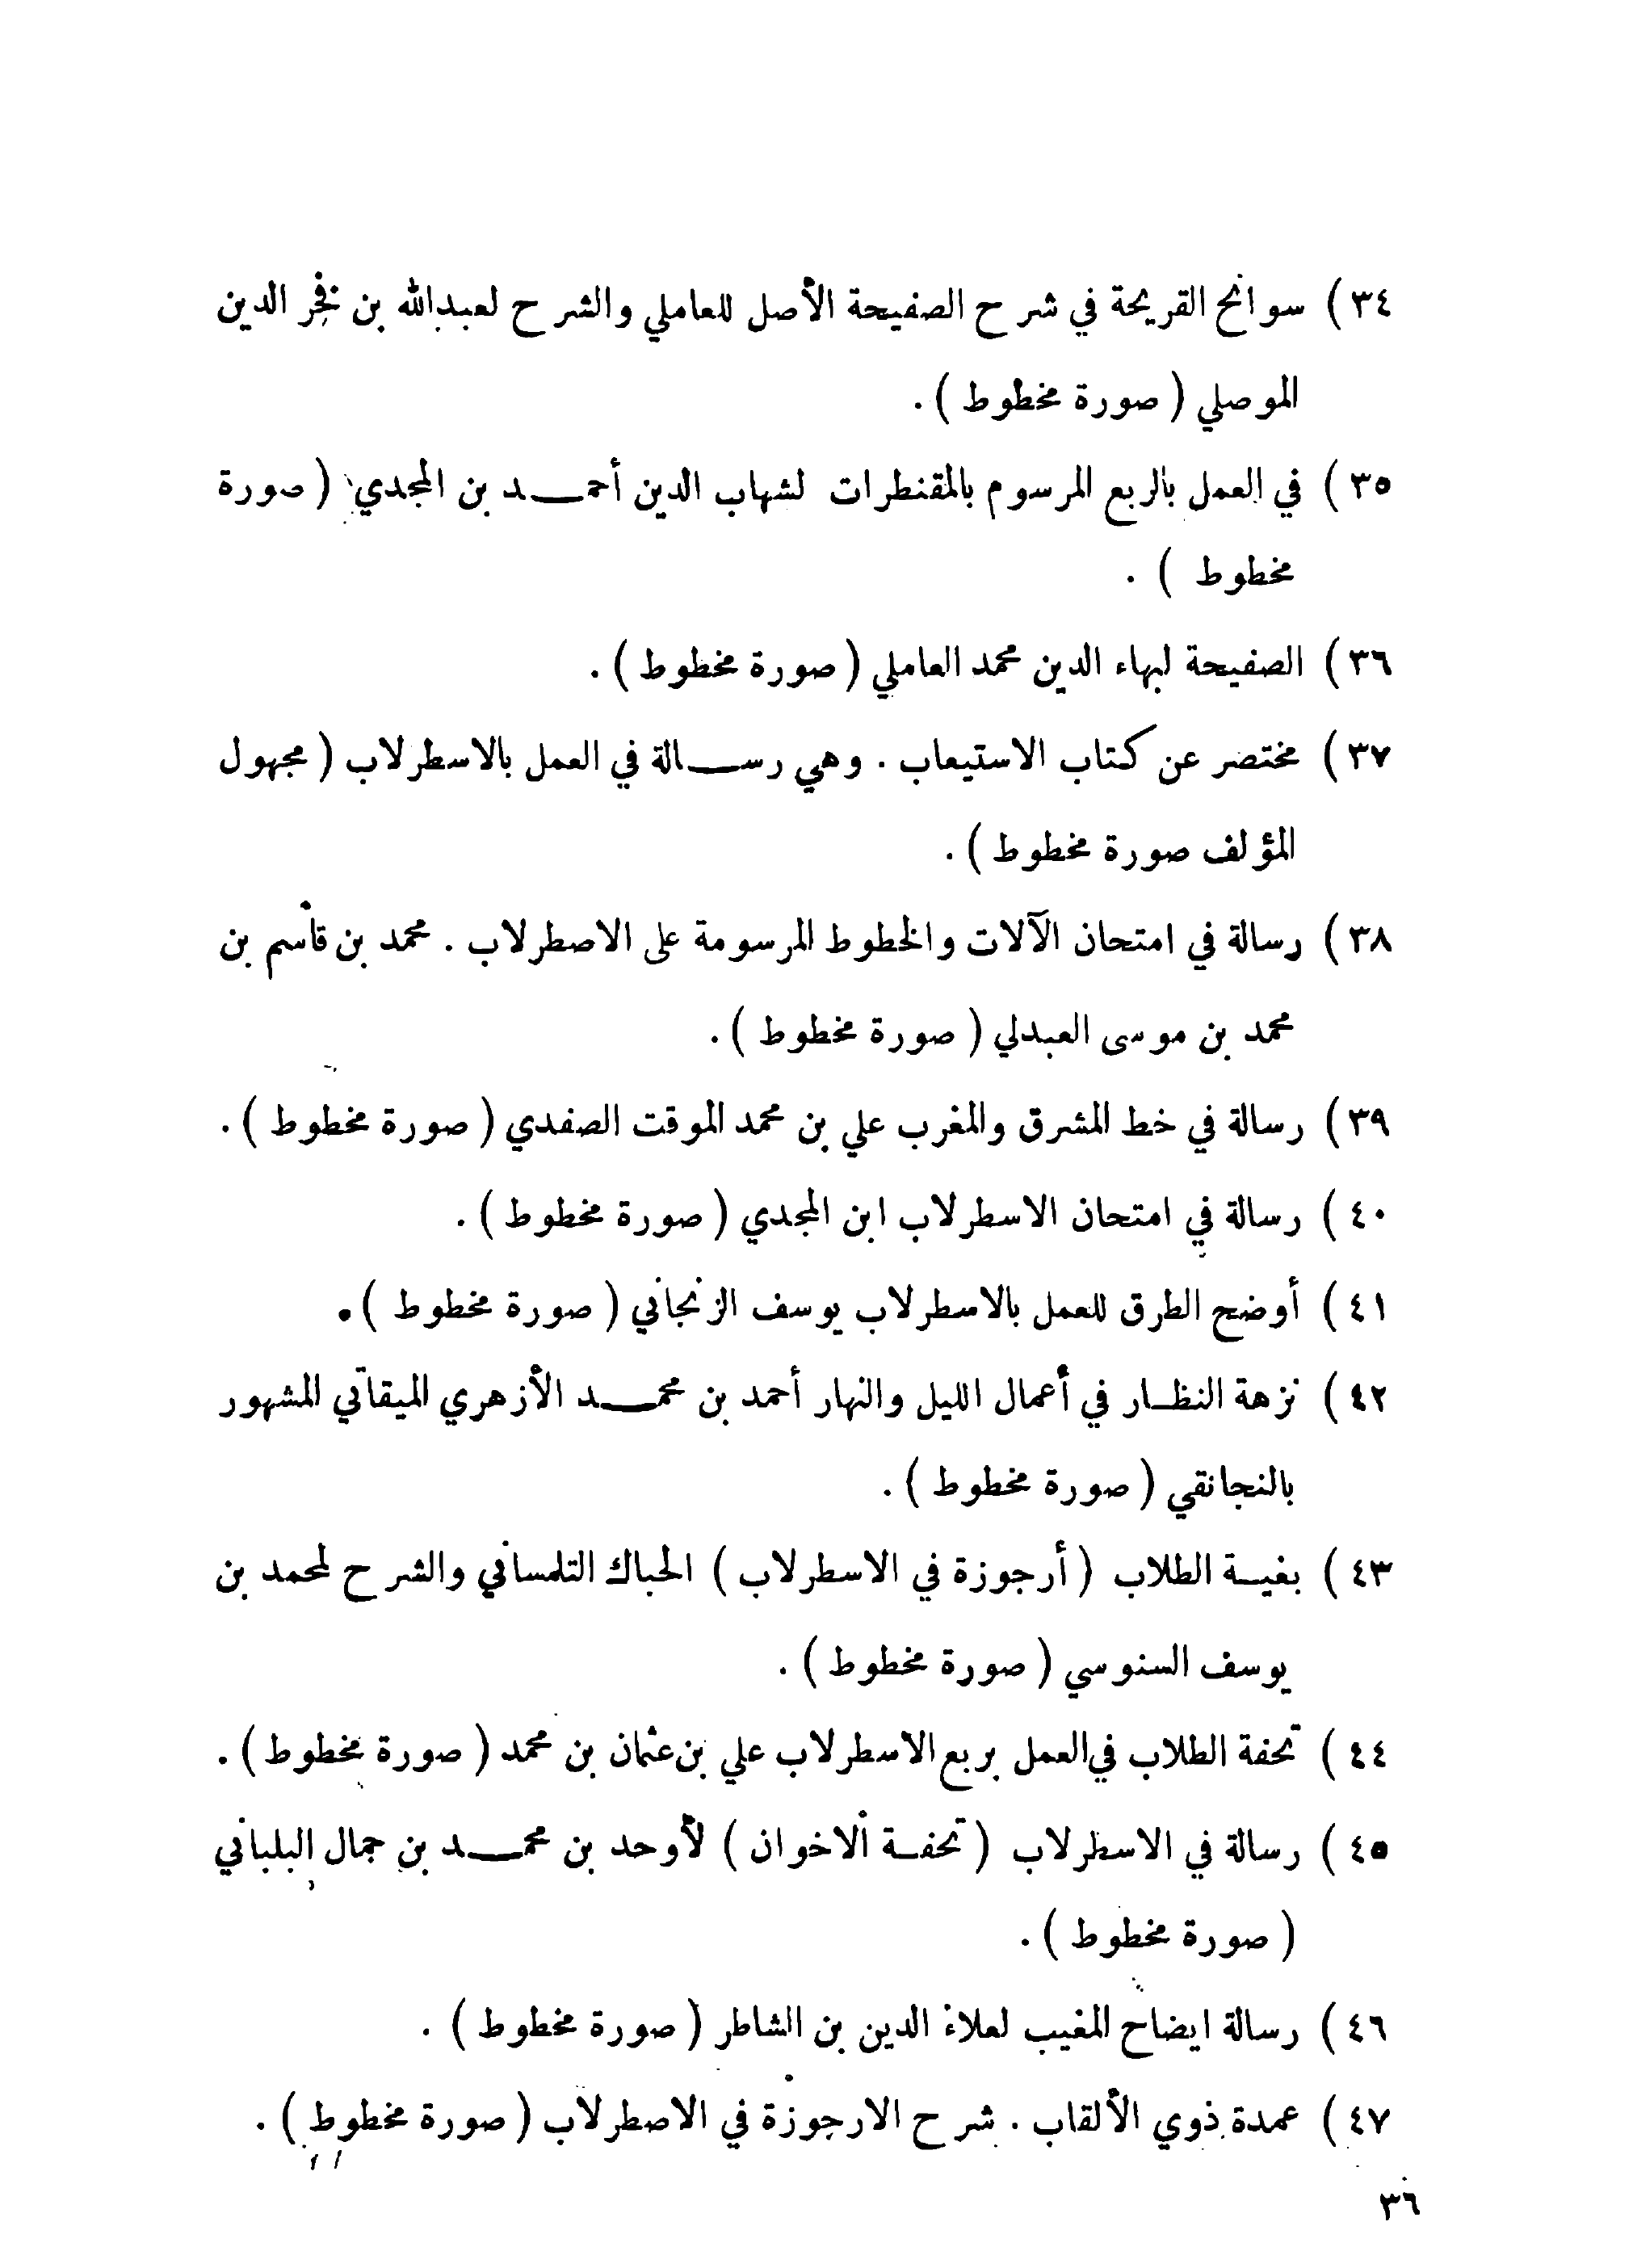 ٣٤) سوانح القريحة في شرح الصفيحة الأصل للعاملي والشرح لعبدالله بن فخر الدين
الموصلي ( صورة مخطوط ) .
٣٥) في العمل بالربع المرسوم بالمقنطرات لشهاب الدين أحمـــد بن المجدي ( صورة
مخطوط ) .
٣٦) الصفيحة لبهاء الدين محمد العاملي ( صورة مخطوط ) .
٣٧) مختصر عن كتاب الاستيعاب . وهي رســـالة في العمل بالاسطرلاب ( مجهول
المؤلف صورة مخطوط ) .
٣٨) رسالة في امتحان الآلات والخطوط المرسومة على الاصطرلاب . محمد بن قاسم بن
محمد بن موسى العبدلي ( صورة مخطوط ) .
٣٩) رسالة في خط المشرق والمغرب علي بن محمد الموقت الصفدي ( صورة مخطوط ) .
٤٠) رسالة في امتحان الاسطرلاب ابن المجدي ( صورة مخطوط ) .
٤١) أوضح الطرق للعمل بالاسطرلاب يوسف الزنجاني ( صورة مخطوط ) .
٤٢) نزهة النظـار في أعمال الليل والنهار أحمد بن محمـــد الأزهري الميقاتي المشهور
بالنجانقي ( صورة مخطوط ) .
٤٣) بغيـة الطلاب ( أرجوزة في الاسطرلاب ) الحباك التلمساني والشرح لمحمد بن
يوسف السنوسي ( صورة مخطوط ) .
٤٤) تحفة الطلاب في العمل بربع الاسطرلاب علي بن عثمان بن محمد ( صورة مخطوط ) .
٤٥) رسالة في الاسطرلاب ( تحفـة الاخوان ) لأوحد بن محمـــد بن جمال البلباني
( صورة مخطوط ) .
٤٦) رسالة ايضاح المغيب لعلاء الدين بن الشاطر ( صورة مخطوط ) .
٤٧) عمدة ذوي الألقاب . شرح الارجوزة في الاصطرلاب ( صورة مخطوط ) .
٣٦